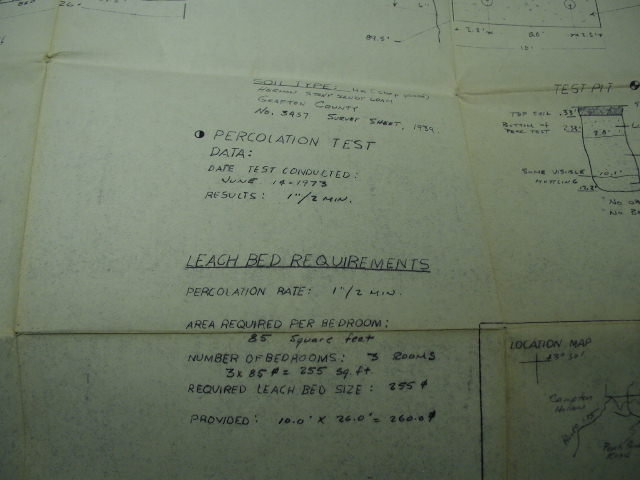 26'
6"
89.5'
2.5'
26.0'
2.5'
SOIL TYPE:
HERMON STONY SANDY LOAM
GRAFTON COUNTY
NO. 3457 SURVEY SHEET, 1939.
PERCOLATION TEST
DATA:
DATE TEST CONDUCTED:
JUNE 14-1973
RESULTS: 1"/2 MIN.
LEACH BED REQUIREMENTS
PERCOLATION RATE: 1"/2 MIN.
AREA REQUIRED PER BEDROOM:
85 Square feet
NUMBER OF BEDROOMS: 3 ROOMS
3 x 85 ⌀ = 255 sq.ft.
REQUIRED LEACH BED SIZE: 255 ⌀
PROVIDED: 10.0' x 26.0' = 260.0 ⌀
TEST PIT
TOP SOIL .33'
BOTTOM OF
PERC TEST 2.33'
2.0'
SOME VISIBLE
MOTTLING
10.1'
"NO
"NO B
LOCATION MAP
43° 50'
Campton
Hollow
Road